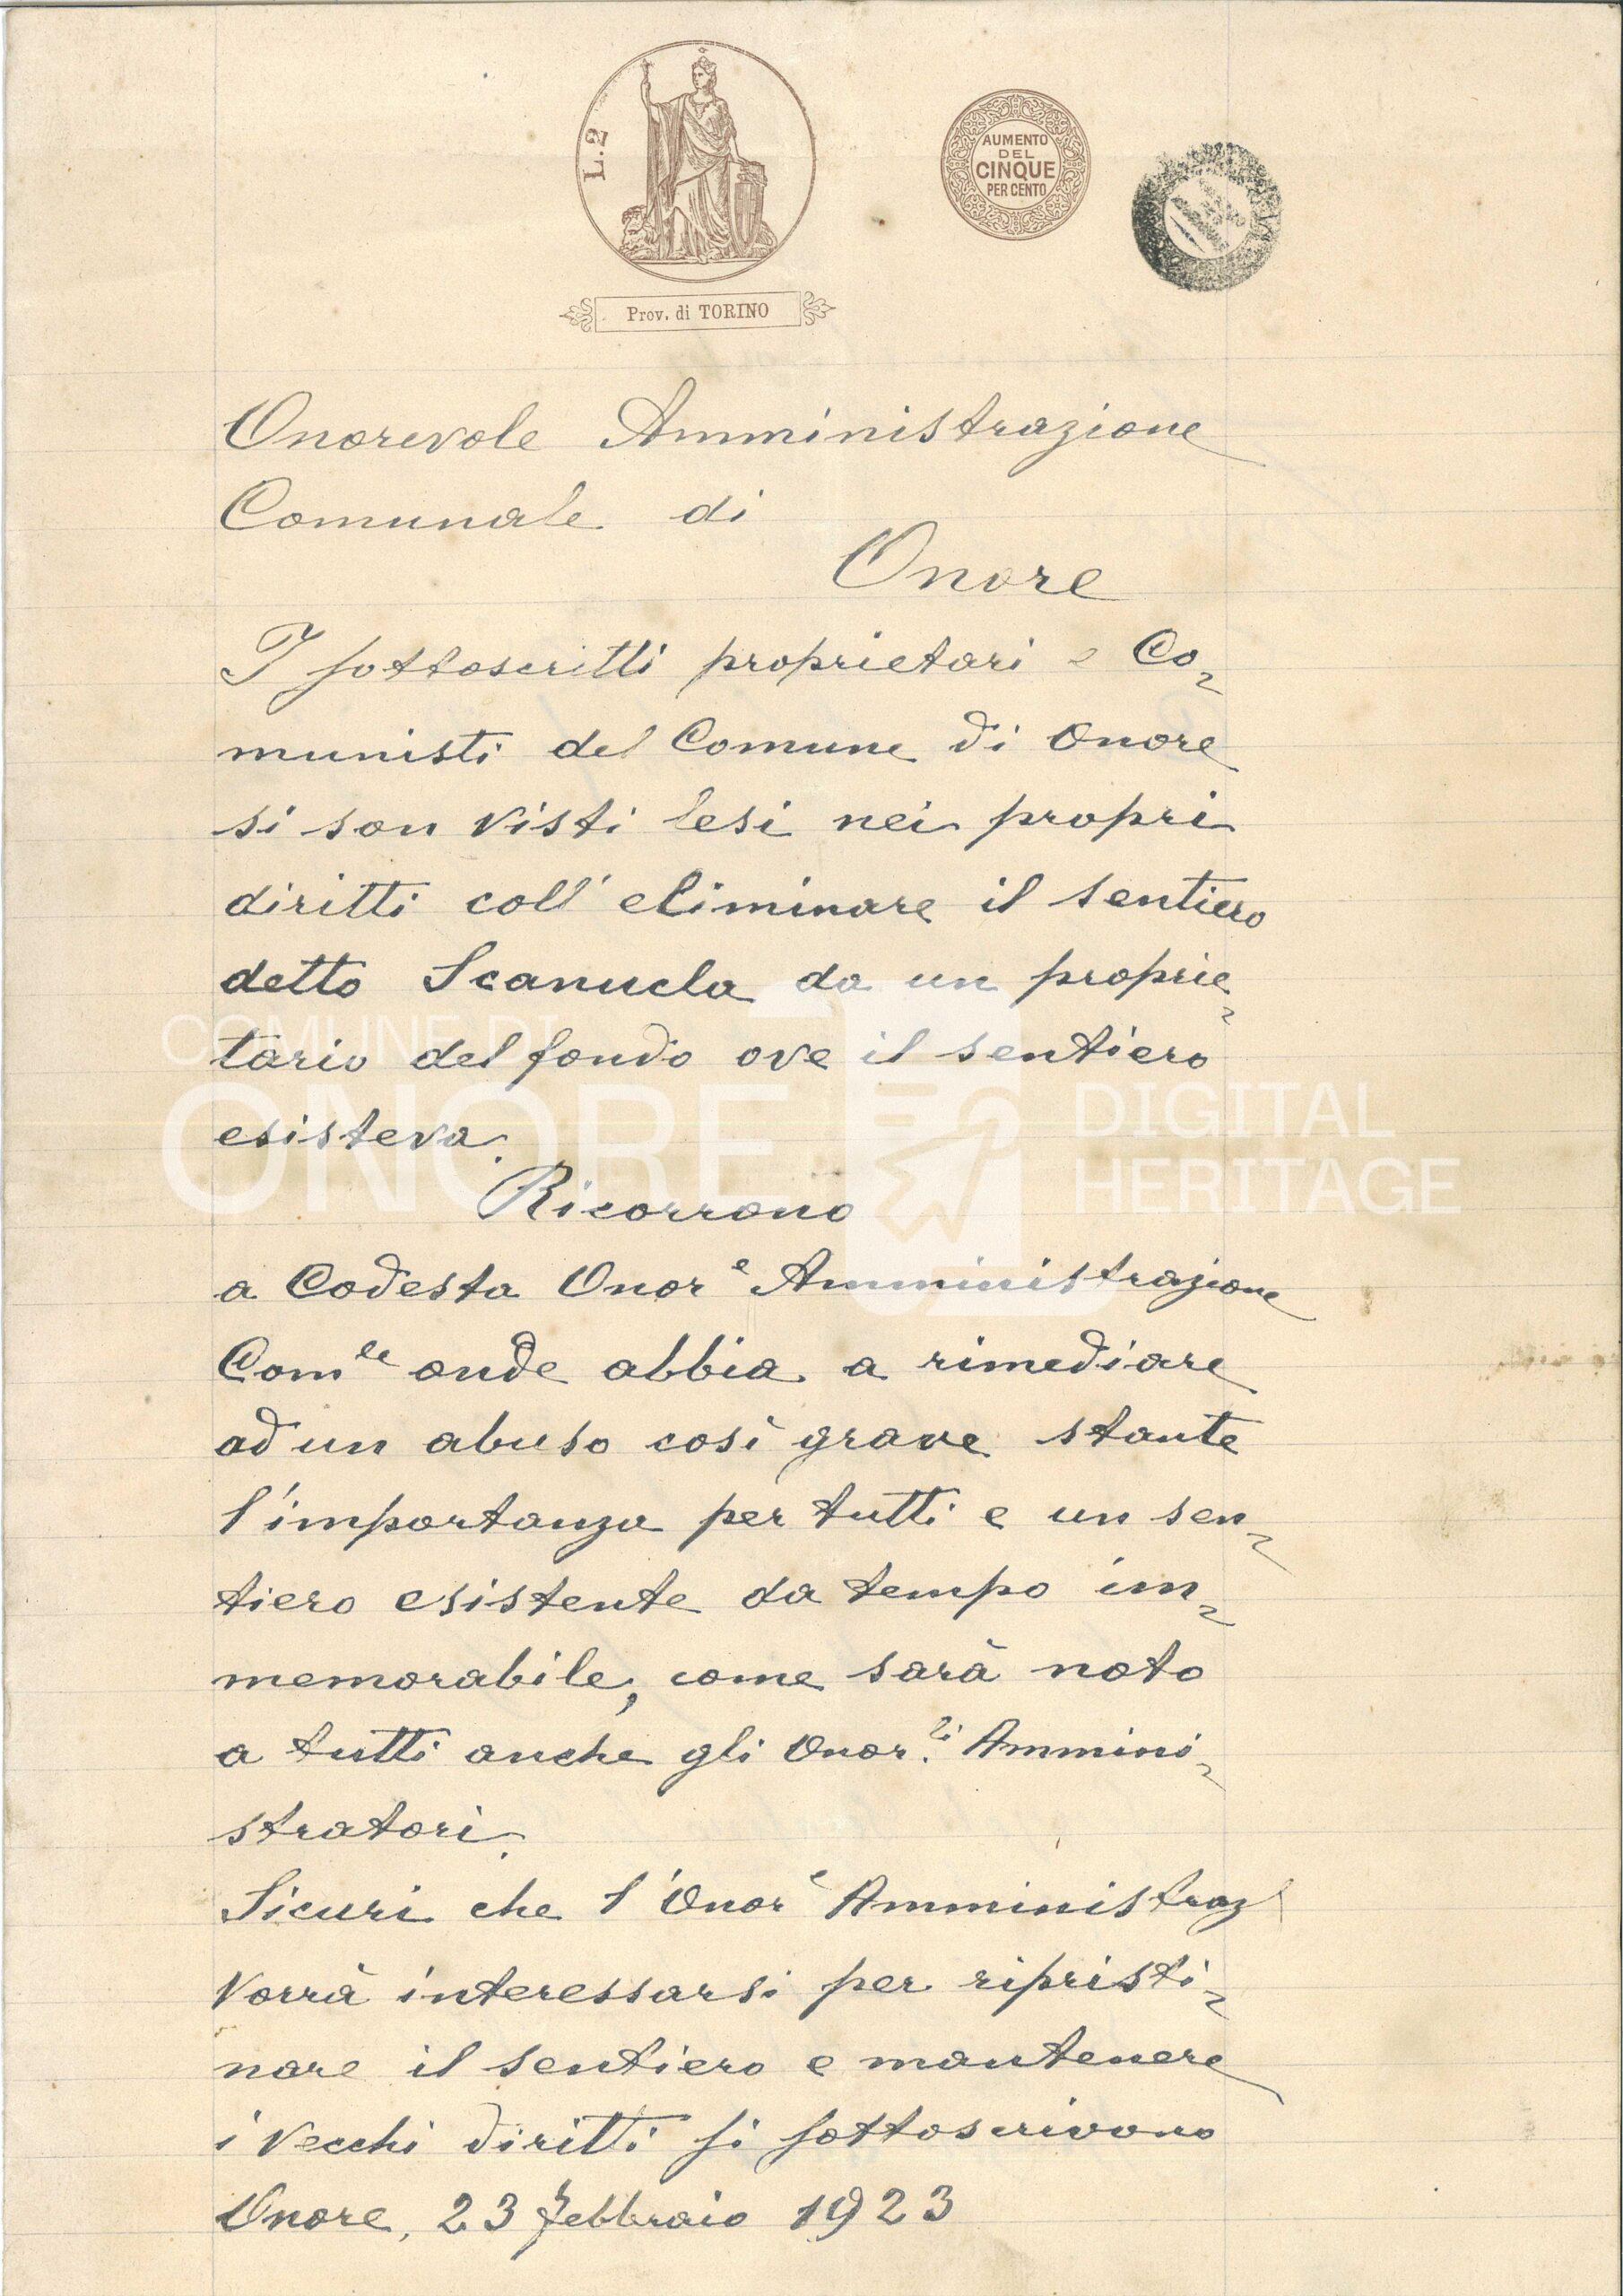 L.2
AUMENTO
DEL
CINQUE
PER CENTO
Prov. di TORINO
Onorevole Amministrazione
Comunale di
Onore
I sottoscritti proprietari e Co-
munisti del Comune di Onore
si son visti lesi nei propri
diritti coll'eliminare il sentiero
detto Scanucla da un proprie-
tario del fondo ove il sentiero
esisteva.
Ricorrono
a Codesta Onor e Amministrazione
Com le onde abbia a rimediare
ad un abuso così grave stante
l'importanza per tutti e un sen-
tiero esistente da tempo im-
memorabile, come sarà noto
a tutti anche gli Onor. li Ammini-
stratori.
Sicuri che l'Onor e Amministraz
vorrà interessarsi per ripristi-
nare il sentiero e mantenere
i vecchi diritti si sottoscrivono
Onore, 23 Febbraio 1923
COMUNE DI
ONORE
DIGITAL
HERITAGE